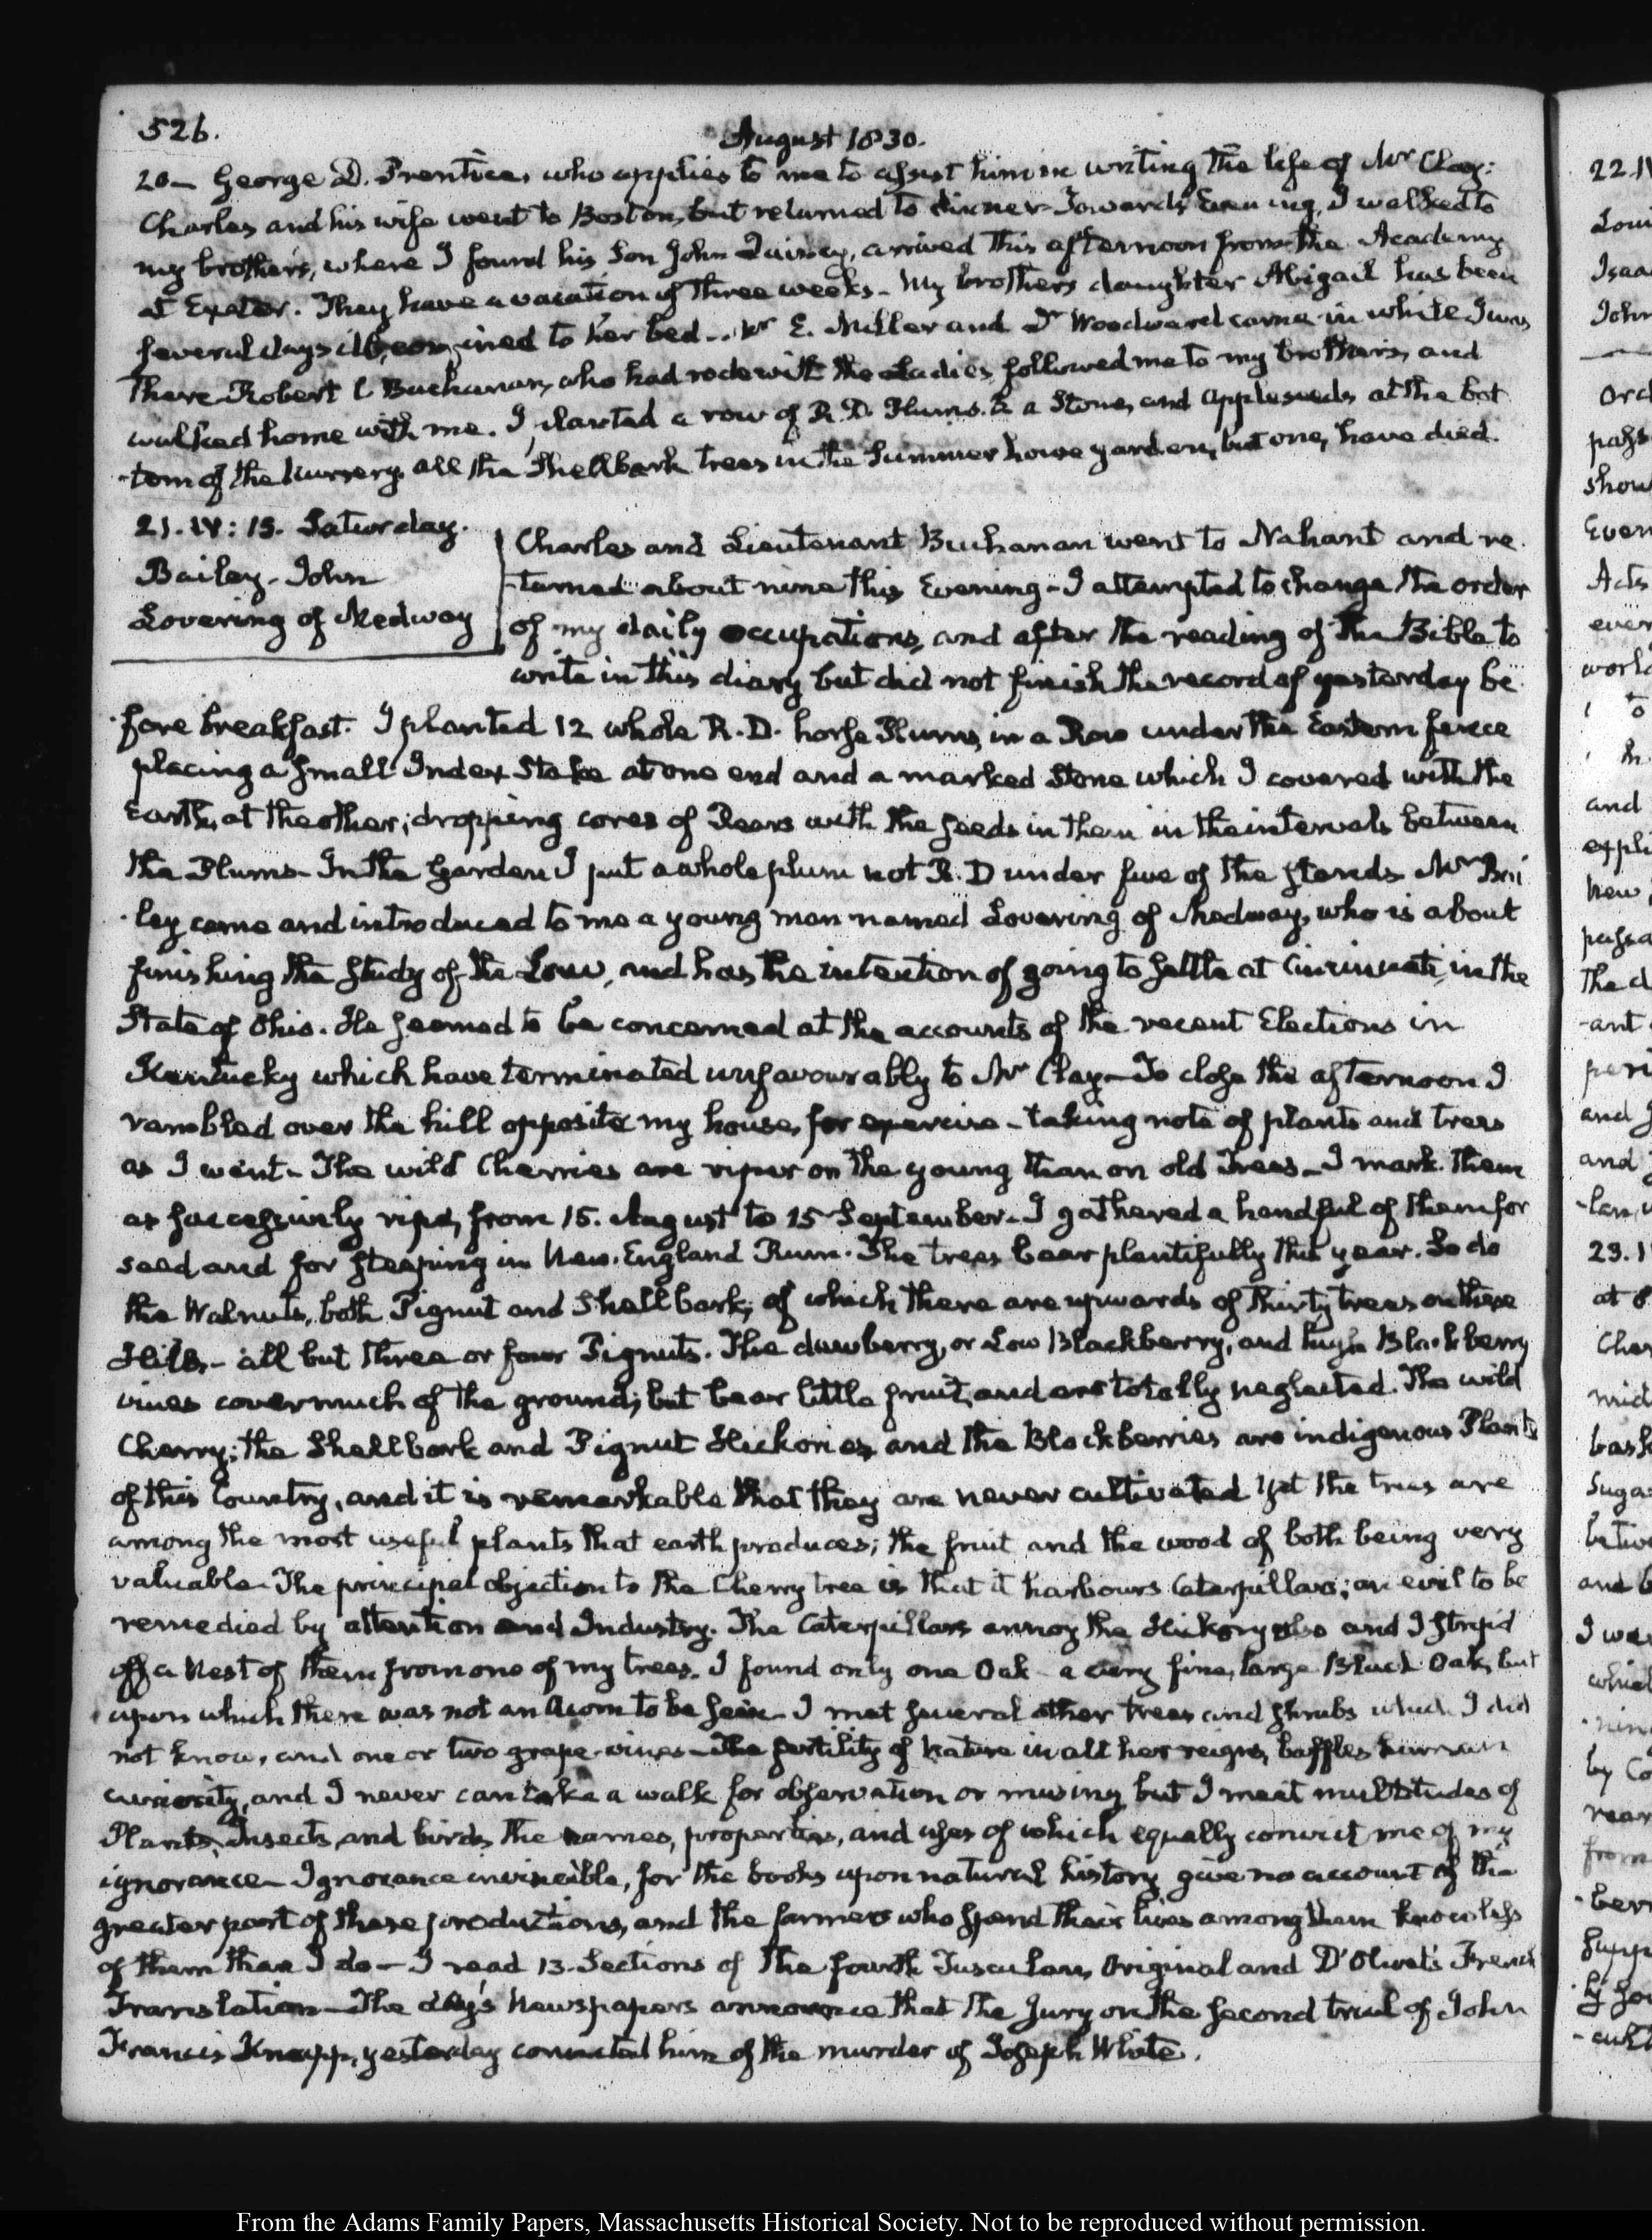 526.
August 1830.
20— George D. Prentice, who applies to me to assist him in writing the life of Mr Clay:
Charles and his wife went to Boston, but returned to dinner— Towards Evening, I walked to
my brother's, where I found his Son John Quincy, arrived this afternoon from the Academy
at Exeter. They have a vacation of three weeks— My brothers daughter Abigail has been
several days ill, confined to her bed— Mr E. Miller and Dr Woodward came in while I was
there— Robert C Buchanan, who had rode with the Ladies, followed me to my brother's, and
walked home with me. I planted a row of R. D. Plums. & a Stone, and appleseeds, at the bot
-tom of the Nursery. all the Shellbark trees in the Summer house garden, but one, have died.
21. IV: 15. Saturday.
Bailey— John
Lovering of Medway
Charles and Lieutenant Buchanan went to Nahant and re
-turned about nine this Evening— I attempted to change the order
of my daily occupations, and after the reading of the Bible to
write in this diary but did not finish the record of yesterday be
-fore breakfast. I planted 12 whole R. D. horse Plums, in a Row under the Eastern fence
placing a small Index Stake at one end and a marked Stone which I covered with the
Earth, at the other; dropping cores of Pears with the seeds in them in the intervals between
the Plums— In the Garden I put a whole plum not R. D under five of the stands Mr Bai
-ley came and introduced to me a young man named Lovering of Medway, who is about
finishing the study of the Law, and has the intention of going to settle at Cincinnati, in the
State of Ohio. He seemed to be concerned at the accounts of the recent Elections in
Kentucky which have terminated unfavourably to Mr Clay— To close the afternoon I
rambled over the hill opposite my house, for exercise— taking note of plants and trees
as I went— The wild Cherries are riper on the young than on old Trees— I mark them
as successively ripe, from 15. August to 15 September— I gathered a handful of them for
seed and for steeping in New-England Rum. The trees bear plentifully this year. So do
the Walnuts, both Pignut and Shellbark; of which there are upwards of thirty trees on these
Hills,— all but three or four Pignuts. The dewberry, or Low Blackberry, and high Blackberry
vines cover much of the ground; but bear little fruit, and are totally neglected. The wild
Cherry; the Shellbark and Pignut Hickories, and the Blackberries are indigenous Plants
of this Country, and it is remarkable that they are never cultivated Yet the trees are
among the most useful plants that earth produces; the fruit and the wood of both being very
valuable— The principal objection to the Cherry tree is that it harbours Caterpillars; an evil to be
remedied by attention and Industry. The Caterpillars annoy the Hickory also and I strip'd
off a Nest of them from one of my trees. I found only one Oak— a very fine, large Black Oak, but
upon which there was not an Acorn to be seen— I met several other trees and shrubs which I did
not know, and one or two grape-vines— The fertility of Nature in all her reigns, baffles human
curiosity, and I never can take a walk for observation or musing but I meet multitudes of
Plants, Insects, and birds, the names, properties, and uses of which equally convict me of my
ignorance— Ignorance invincible, for the books upon natural history give no account of the
greater part of these productions, and the farmers who spend their lives among them know less
of them than I do— I read 13. Sections of the fourth Tusculan, Original and D'Olivet's French
Translation— The day's Newspapers announce that the Jury on the second trial of John
Francis Knapp, yesterday convicted him of the murder of Joseph White.
From the Adams Family Papers, Massachusetts Historical Society. Not to be reproduced without permission.